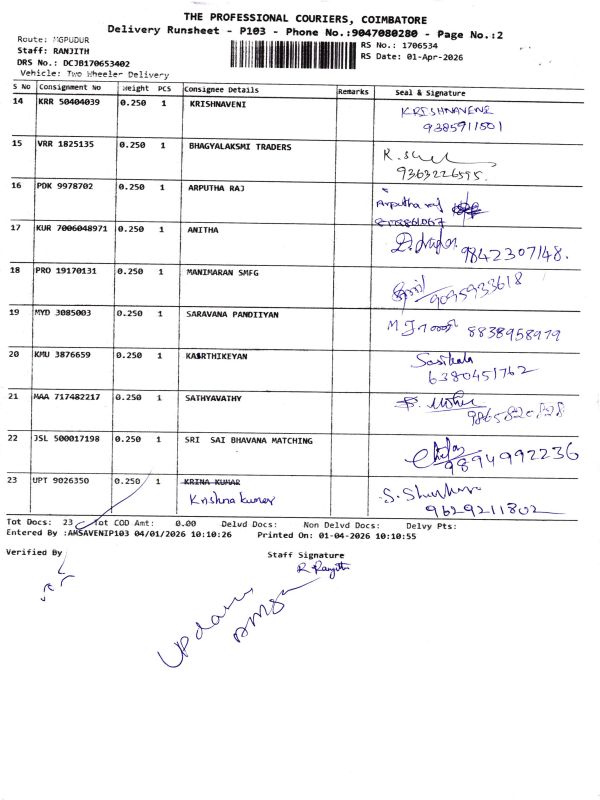 THE PROFESSIONAL COURIERS, COIMBATORE
Delivery Runsheet - P103 - Phone No.:9047080280 - Page No.:2
Route: MGPUDUR
RS No.: 1706534
Staff: RANJITH
RS Date: 01-Apr-2026
DRS No.: DCJB170653402
Vehicle: Two Wheeler Delivery
S No Consignment No Weight PCS Consignee Details Remarks Seal & Signature
14 KRR 50404039 0.250 1 KRISHNAVENI KRISHNAVENI
9385911501
15 VRR 1825135 0.250 1 BHAGYALAKSMI TRADERS
9363226595.
16 PDK 9978702 0.250 1 ARPUTHA RAJ Arputha raj
17 KUR 7006048971 0.250 1 ANITHA 9842307148.
18 PRO 19170131 0.250 1 MANIMARAN SMFG
9095933618
19 MYD 3085003 0.250 1 SARAVANA PANDIIYAN 8838958979
20 KMU 3876659 0.250 1 KAARTHIKEYAN Sasikala
6380451762
21 MAA 717482217 0.250 1 SATHYAVATHY
22 JSL 500017198 0.250 1 SRI SAI BHAVANA MATCHING
9894992236
23 UPT 9026350 0.250 1 KRINA KUMAR
Krishna kumar
9629211802
Tot Docs: 23 Tot COD Amt: 0.00 Delvd Docs: Non Delvd Docs: Delvy Pts:
Entered By :AMSAVENIP103 04/01/2026 10:10:26 Printed On: 01-04-2026 10:10:55
Verified By Staff Signature
R Ranjith